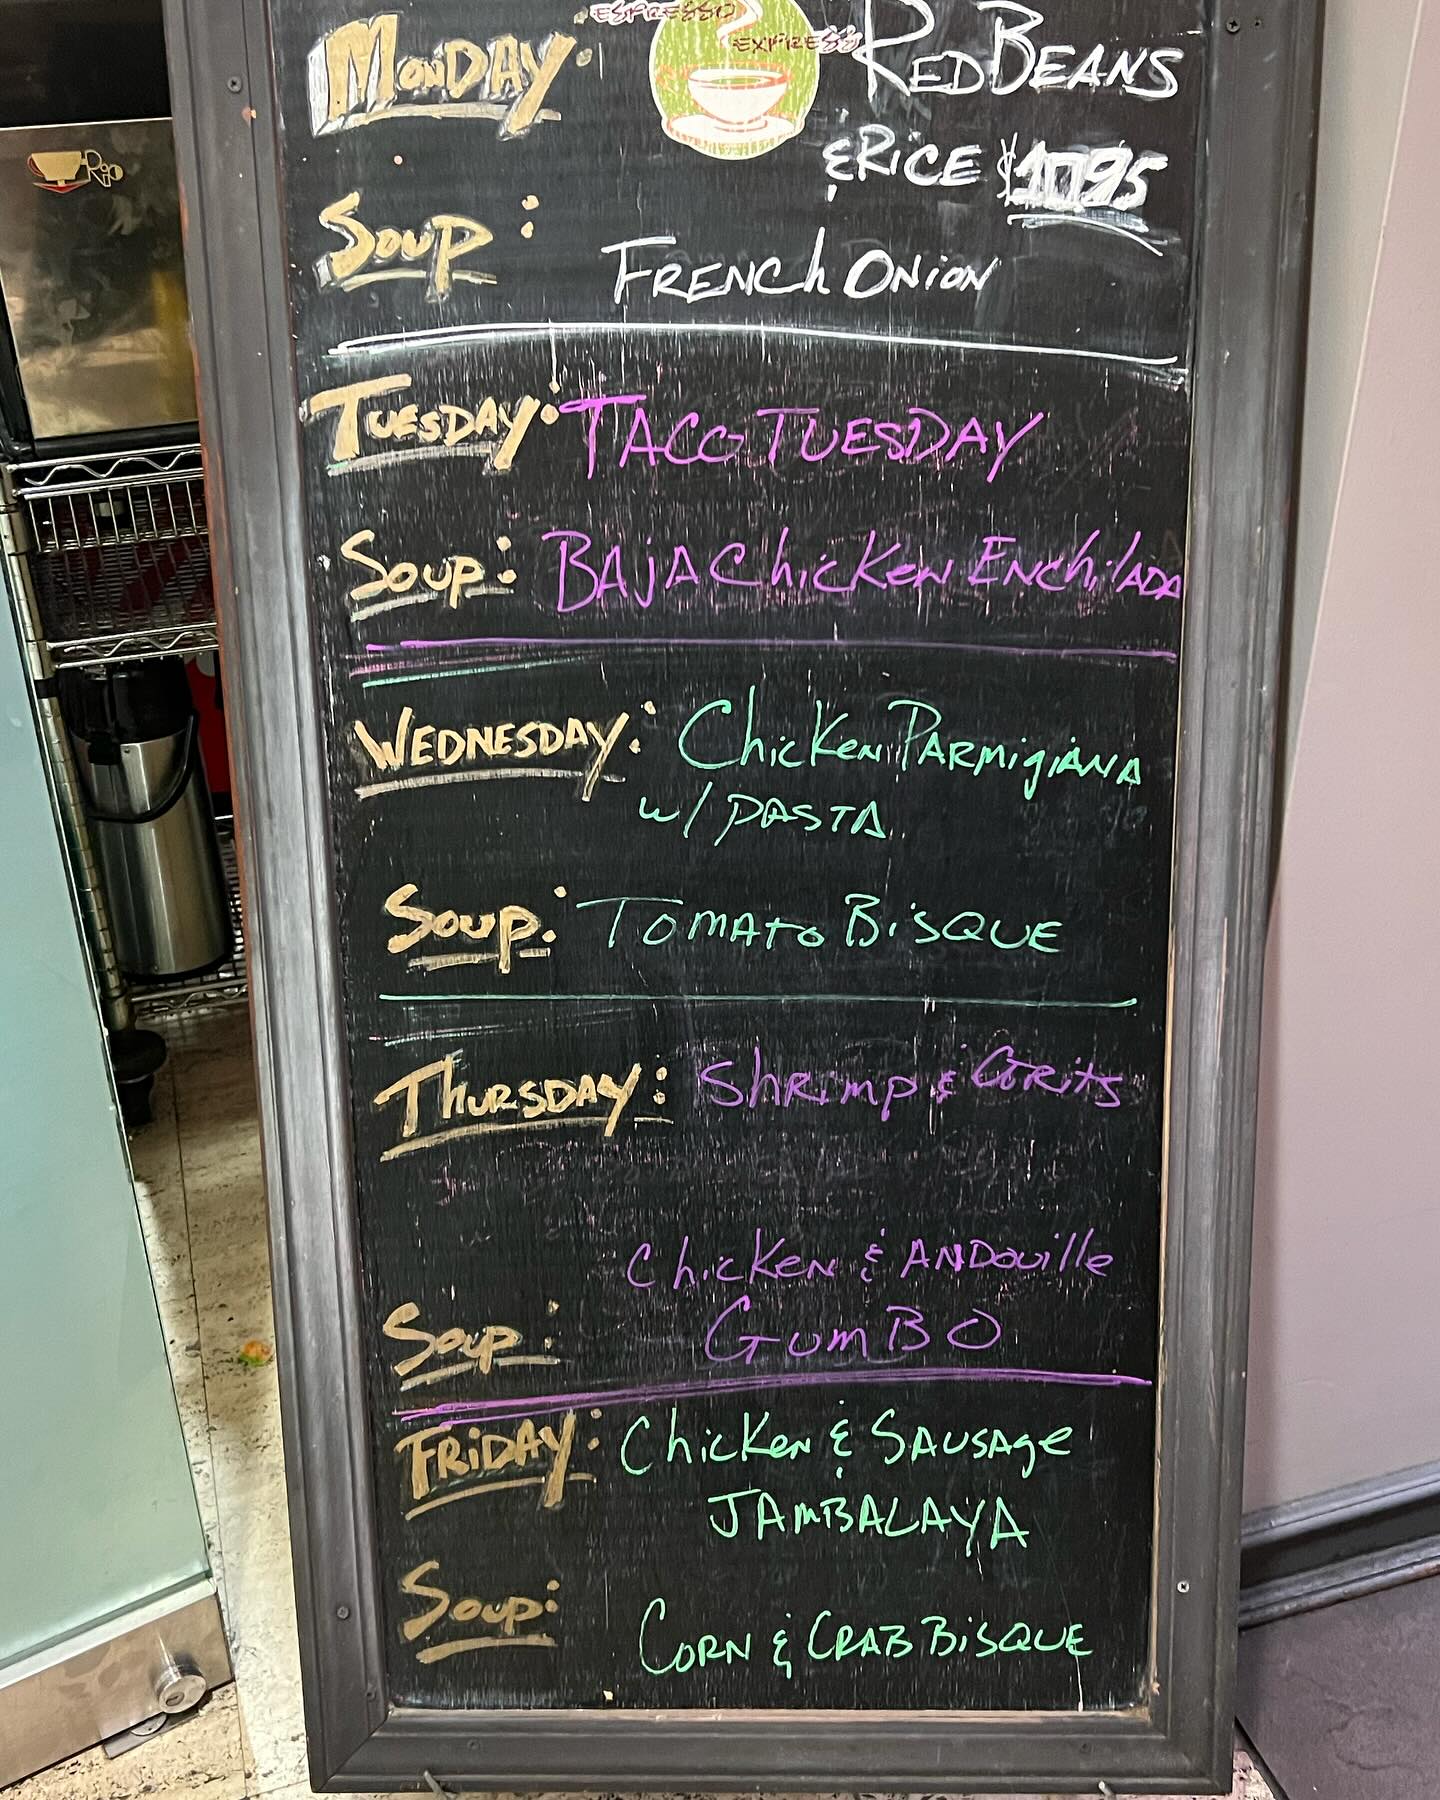 ESPRESSO
EXPRESS
MONDAY: RED BEANS
& RICE $10.95
SOUP: FRENCH ONION
TUESDAY: TACO TUESDAY
SOUP: BAJA CHICKEN ENCHILADA
WEDNESDAY: CHICKEN PARMIGIANA
W/ PASTA
SOUP: TOMATO BISQUE
THURSDAY: SHRIMP & GRITS
CHICKEN & ANDOUILLE
SOUP: GUMBO
FRIDAY: CHICKEN & SAUSAGE
JAMBALAYA
SOUP: CORN & CRAB BISQUE
Rio